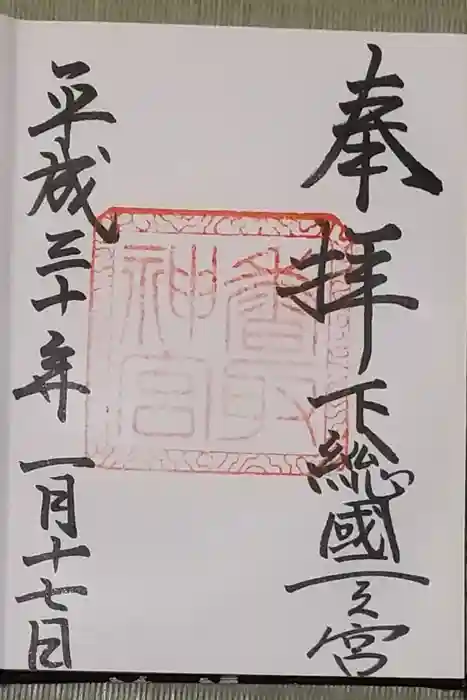 奉拝 下總國一之宮
香取神宮
平成三十年一月十七日